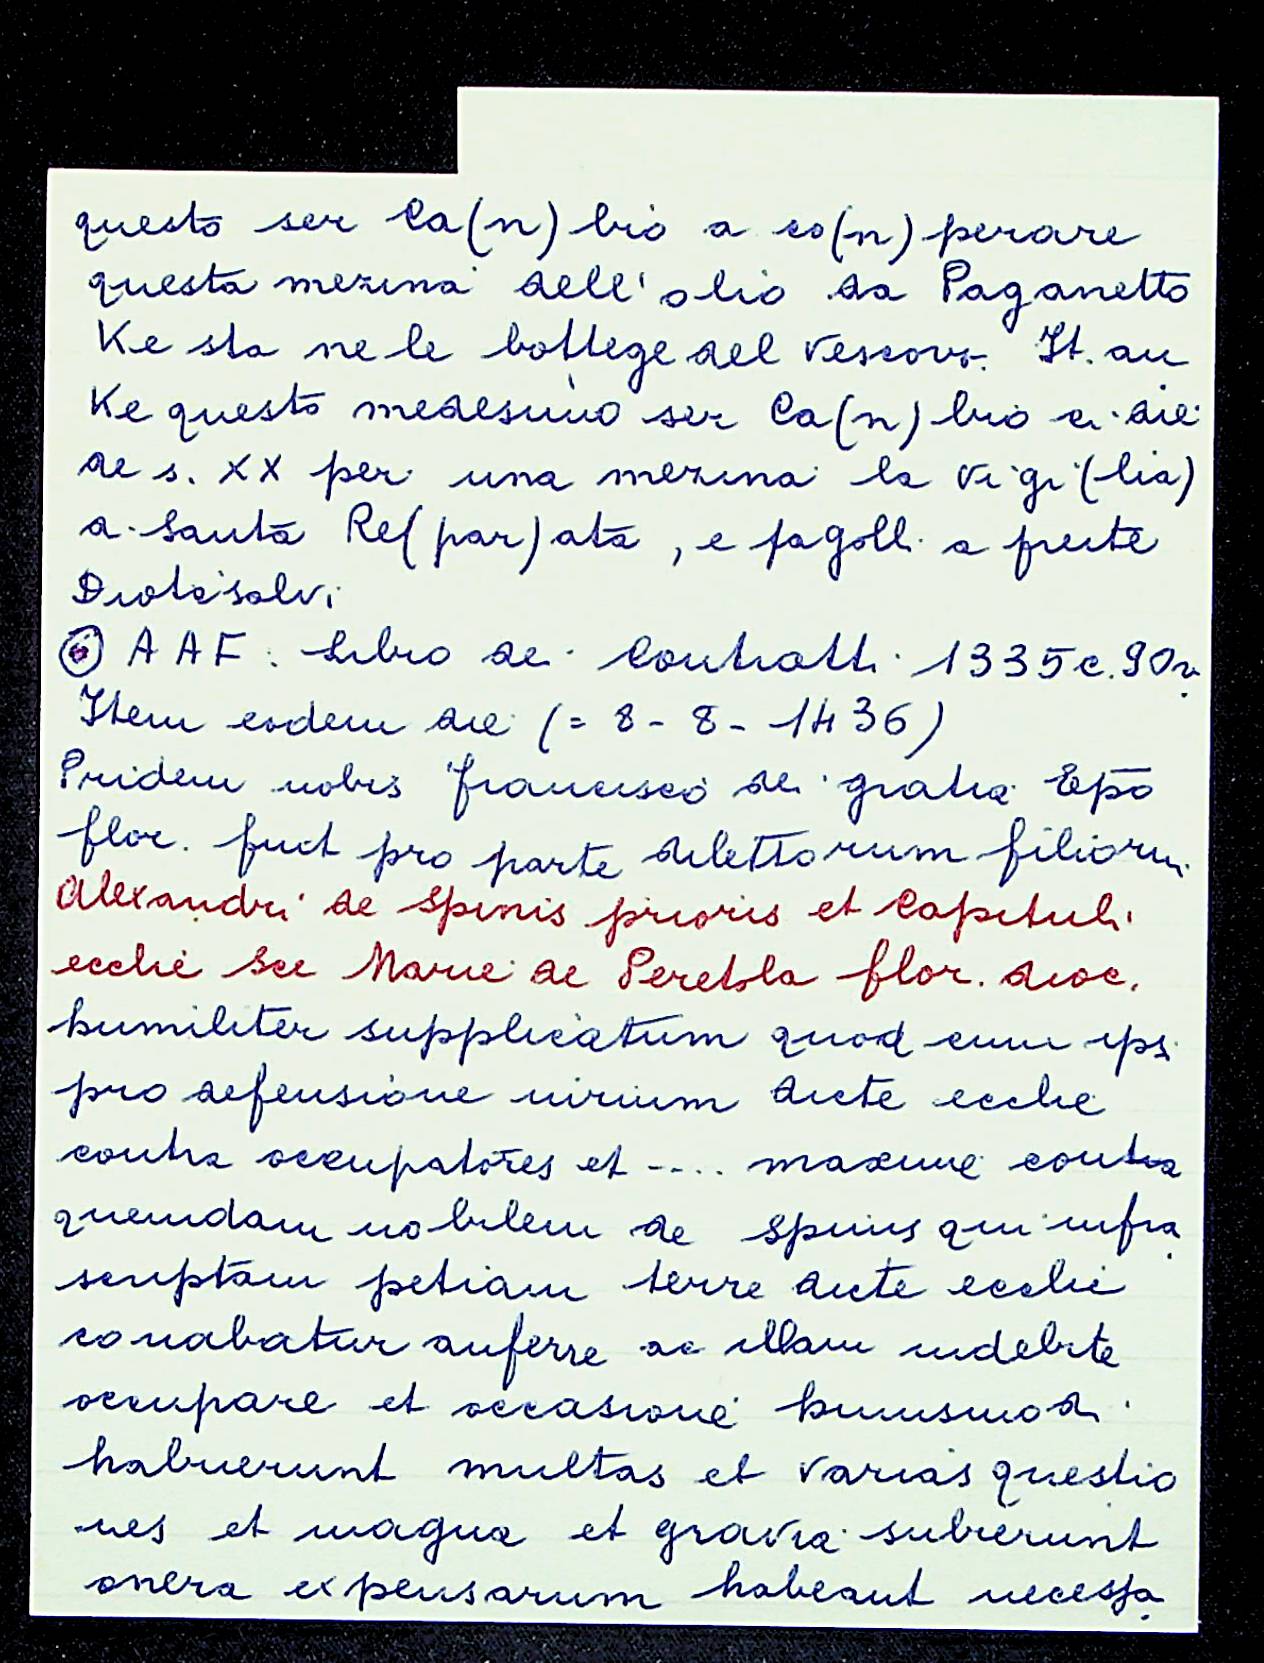 questo ser Ca(n)bio a co(n)perare
questa mezina dell'olio da Paganetto
Ke sta ne le bottege del vescovo. It. an
Ke questo medesimo ser Ca(n)bio ci die
de s. XX per una mezina la vigi(lia)
a. Santa Re(par)ata, e pagolli a prete
Diotesalvi
⑥ AAF. Libro dei Contratti 1335 c. 90v
Item eodem die (= 8-8-1436)
Pridem nobis francisco dei gratia Epō
flor. fuit pro parte dilettorum filioru.
Alexandri de Spinis prioris et Capituli
ecclie Sce Marie de Peretola flor. dioc.
humiliter supplicatum quod cum ipsi
pro defensione iurium dicte ecclie
contra occupatores et .... maxime contra
quemdam nobilem de Spinis qui infra
scriptam petiam terre dicte ecclie
conabatur auferre ac illam indebite
occupare et occasione huiusmodi
habuerunt multas et varias questio
nes et magna et gravia subierunt
onera expensarum habeant necessa